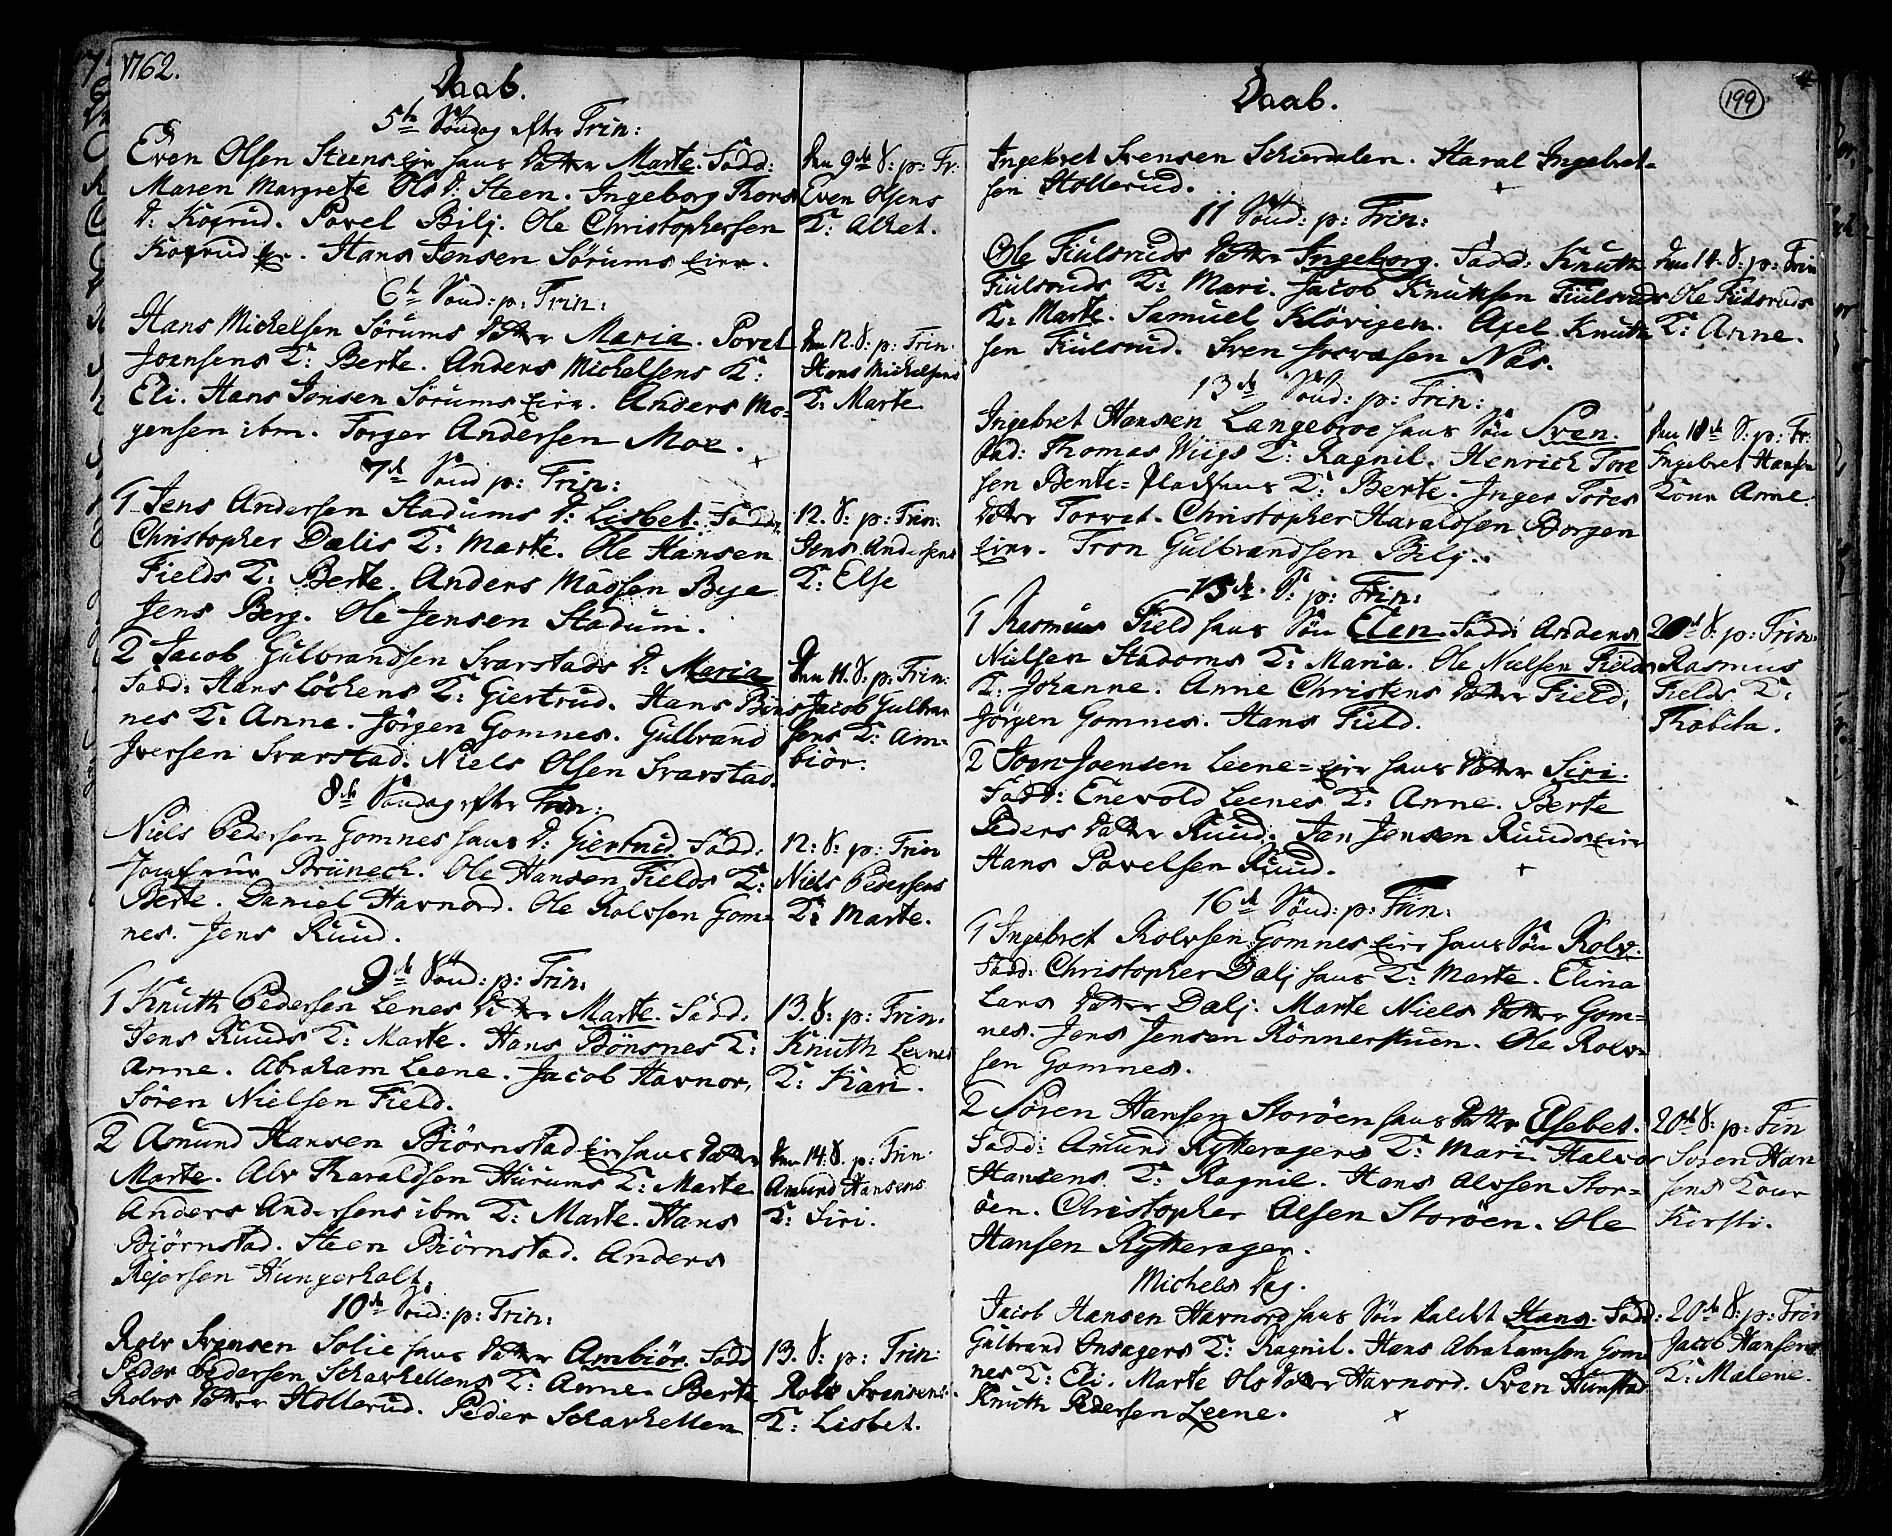 1762.
Daab.
5te Söndag efter Trin:
Even Olsen Steens eie hans datter Marte. Fadd:
Maren Margrete Ols d: Steen. Ingeborg Thors
d: Kofrud. Povel Bilj. Ole Christophersen
Kofrud eie. Hans Jensen Sörums eie.
6te Sönd: p: Trin:
Hans Michelsen Sörums datter Maria. Povel
Joensens K: Berte. Anders Michelsens K:
Eli. Hans Jonsen Sörums eie. Anders Mo-
gensen ibm. Torger Andersen Moe.
7de Sönd p: Trin:
1 Jens Andersen Stadums d: Lisbet. Fadd:
Christopher Dælis K: Marte. Ole Hansen
Fields K: Berte. Anders Madsen Bye
Jens Berg. Ole Jensen Stadum.
2 Jacob Gulbrandsen Svarstads d: Maria
Fadd: Hans Löckens K: Giertrud. Hans Böns
nes K: Anne. Jörgen Gomnes. Gulbrand
Iversen Svarstad. Niels Olsen Svarstad.
8de Söndag efter Trin:
Niels Pedersen Gomnes hans d: Giertrud. Fadd:
Jomfrue Brünech. Ole Hansen Fields K:
Berte. Daniel Havnord. Ole Rolvsen Gom-
nes. Jens Ruud.
9de Sönd: p: Trin:
1 Knuth Pedersen Lenes datter Marte. Fadd:
Jens Ruuds K: Marte. Hans Bönsnes K:
Anne. Abraham Leene. Jacob Havnor,
Sören Nielsen Field.
2 Amund Hansen Biörnstad eie hans datter
Marte. Alv Haraldsen Hurums K: Marte
Anders Andersens ibm K: Marte. Hans
Biörnstad. Steen Biörnstad. Anders
Rejersen Hungerholt.
10de Sönd: p: Trin:
Rolv Svensen Solie hans datter Ambiör. Fadd
Peder Pedersen Scharkellens K: Anne. Berte
Rolvs datter Hollerud. Peder Scharkellen
Den 9de S: p: Tr:
Even Olsens
K: Alhet.
Den 12. S: p: Trin.
Hans Michelsens
K: Marte
12. S: p: Trin:
Jens Andersens
K: Else
Den 11. S: p: Trin:
Jacob Gulbran
sens K: Am-
biör.
12. S: p: Trin
Niels Pedersens
K: Marte.
13. S: p: Trin.
Knuth Leenes
K: Kari.
Den 14. S. p: Trin:
Amund Hansens
K: Siri.
13. S: p: Trin:
Rolv Svensens
K: Lisbet.
199
Daab.
Ingebret Svensen Schierdalen. Haral Ingebret-
sen Hollerud.
11 Sönd: p: Trin:
Ole Fiulsruds datter Ingeborg. Fadd: Knuth
Fiulsruds K: Mari. Jacob Knutsen Fiulsruds
K: Marte. Samuel Klövigen. Axel Knuth
sen Fiulsrud. Sven Josvasen Næs.
13de Sönd: p: Trin:
Ingebret Hansen Langebroe hans Sön Sven.
Fad: Thomas Wiigs K: Ragnil. Henrich Tore
sen Bente-Pladshus K: Berte. Inger Tores
datter Torvet. Christopher Haraldsen Borgen
eie. Tron Gulbrandsen Bilj.
15de S: p: Trin:
1 Rasmus Field hans Sön Elen. Fadd: Anders
Nielsen Stadoms K: Maria. Ole Nielsen Fields
K: Johanne. Anne Christens datter Field,
Jörgen Gomnes. Hans Field.
2 Joen Joensen Leene-eie hans datter Siri.
Fadd: Enevold Leenes K: Anne. Berte
Peders datter Ruud. Jan Jensen Ruuds eie
Hans Povelsen Ruud.
16de Sönd: p: Trin:
1 Ingebret Rolvsen Gomnes eie hans Sön Rolv.
Fadd: Christopher Dalj hans K: Marte. Elina
Lars datter Dalj. Marte Niels datter Gom-
nes. Jens Jensen Rönnerstuen. Ole Rolv-
sen Gomnes.
2 Sören Hansen Storöen hans datter Elsebet.
Fadd: Amund Rytteragers K: Mari. Halvor
Hansens K: Ragnil. Hans Alvsen Stor-
öen. Christopher Alfsen Storöen. Ole
Hansen Rytterager.
Michels Dag.
Jacob Hansen Havnord hans Sön kaldet Hans. Fadd:
Gulbrand Onsagers K: Ragnil. Hans Abrahamsen Gom
nes K: Eli. Marte Ols datter Havnord. Sven Hunstad
Knuth Pedersen Leene.
Den 14. S: p: Trin
Ole Fiulsruds
K: Anne.
Den 18de S: p: Tr:
Ingebret Hansen
Kone Anne.
20de S: p: Trin:
Rasmus
Fields K:
Thabita.
20de S: p: Trin
Sören Han
sens Kone
Kirsti.
20de S: p: Trin
Jacob Hansens
K: Malene.